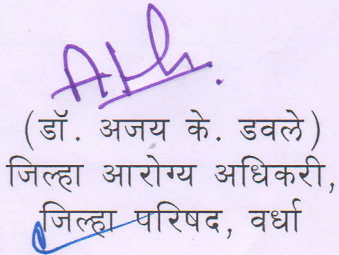 (डॉ. अजय के. डवले)
जिल्हा आरोग्य अधिकरी,
जिल्हा परिषद, वर्धा